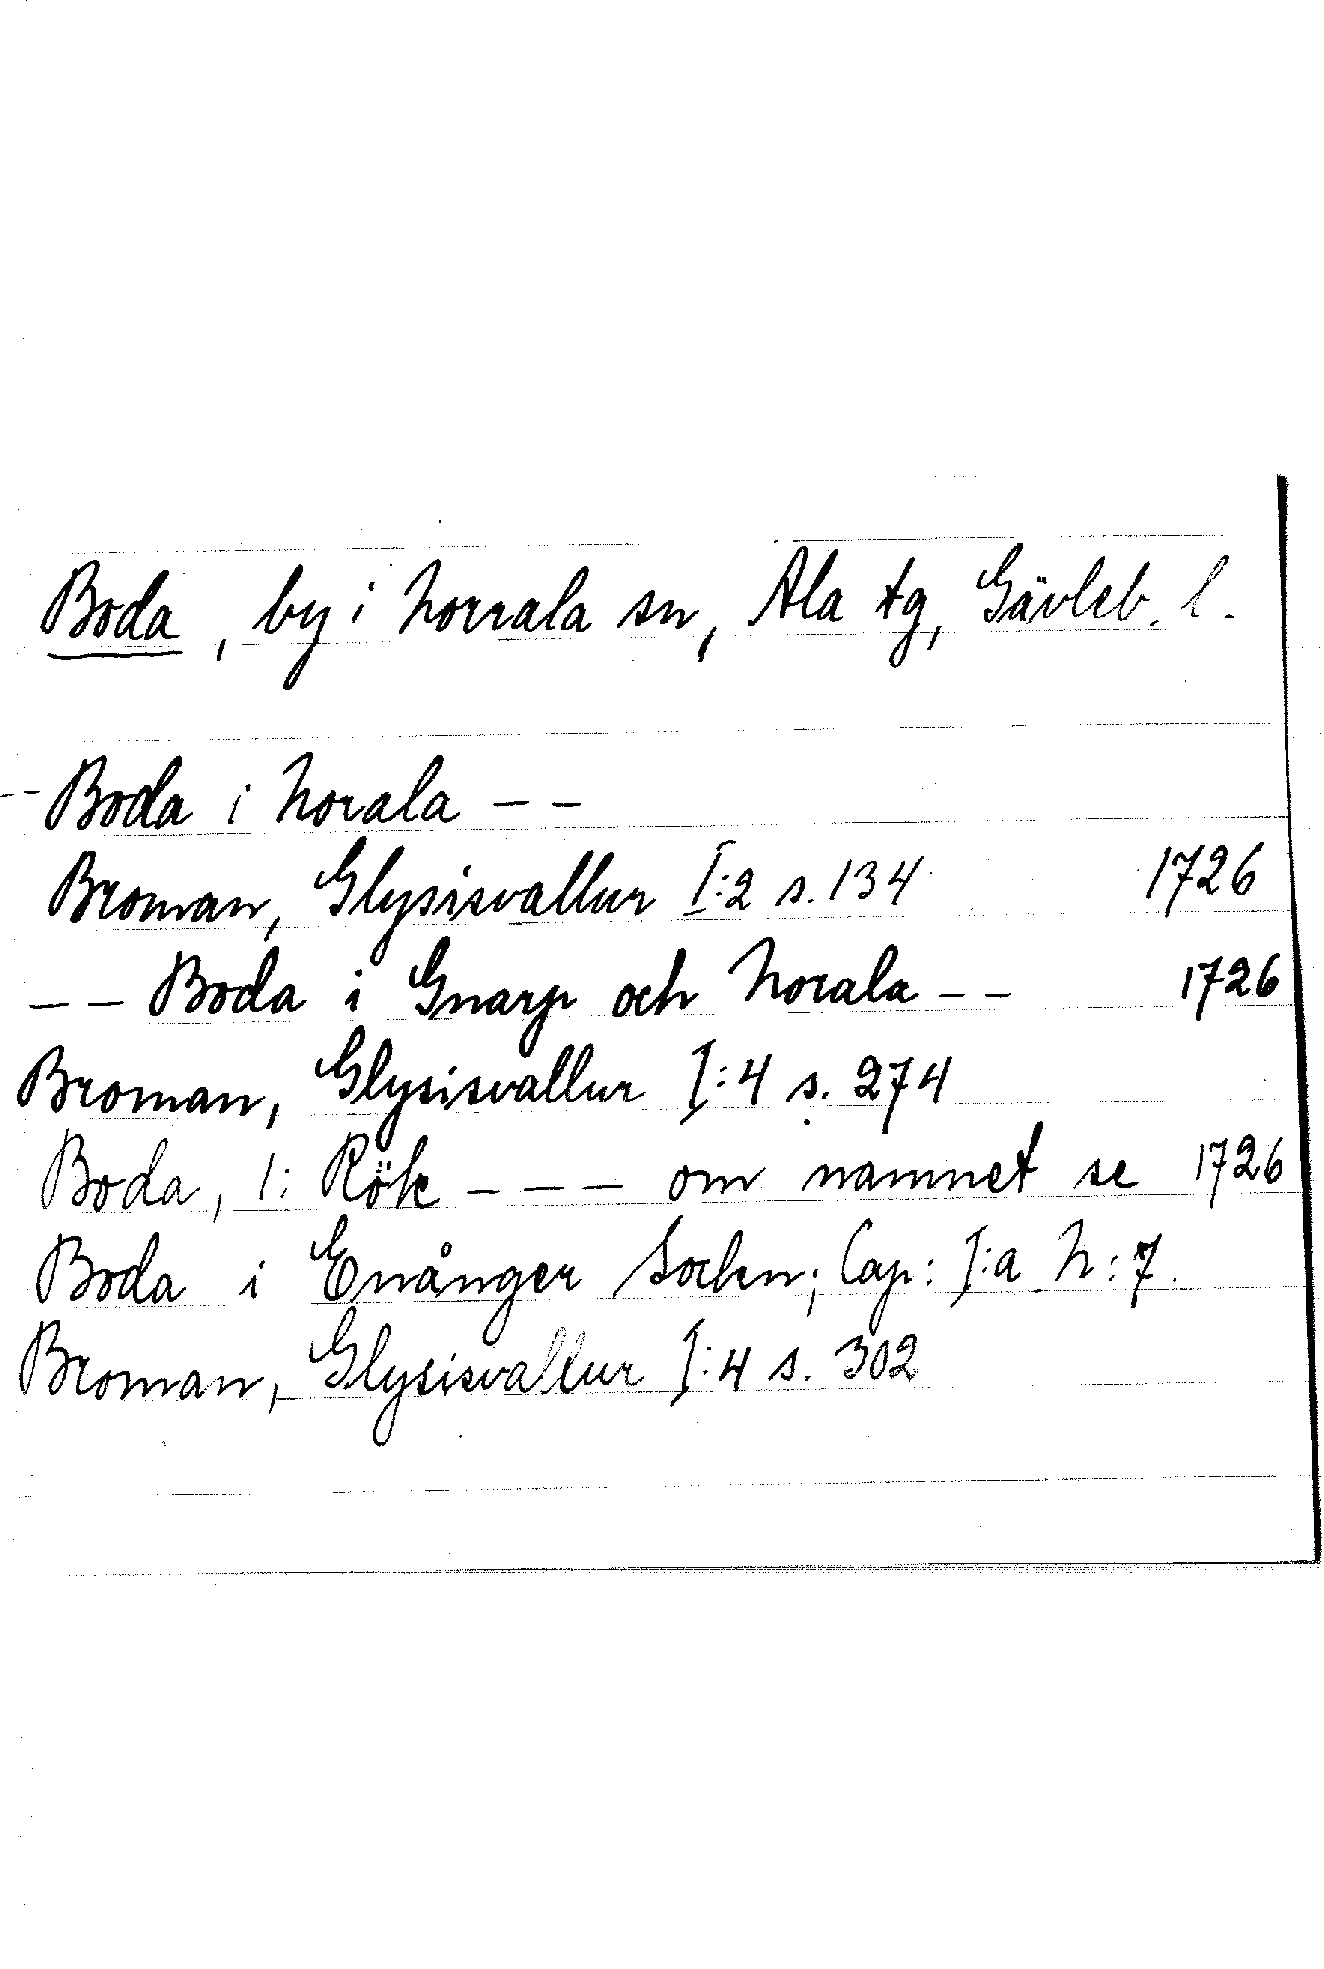 Boda, by i Norrala sn, Ala tg, Gävleb. l.
-- Boda i Norala --
Broman, Glysisvallur I:2 s. 134 1726
-- Boda i Gnarp och Norala -- 1726
Broman, Glysisvallur I:4 s. 274
Boda, 1: Rök --- om namnet se 1726
Boda i Enånger Socken; Cap: I:a N:7.
Broman, Glysisvallur I:4 s. 302